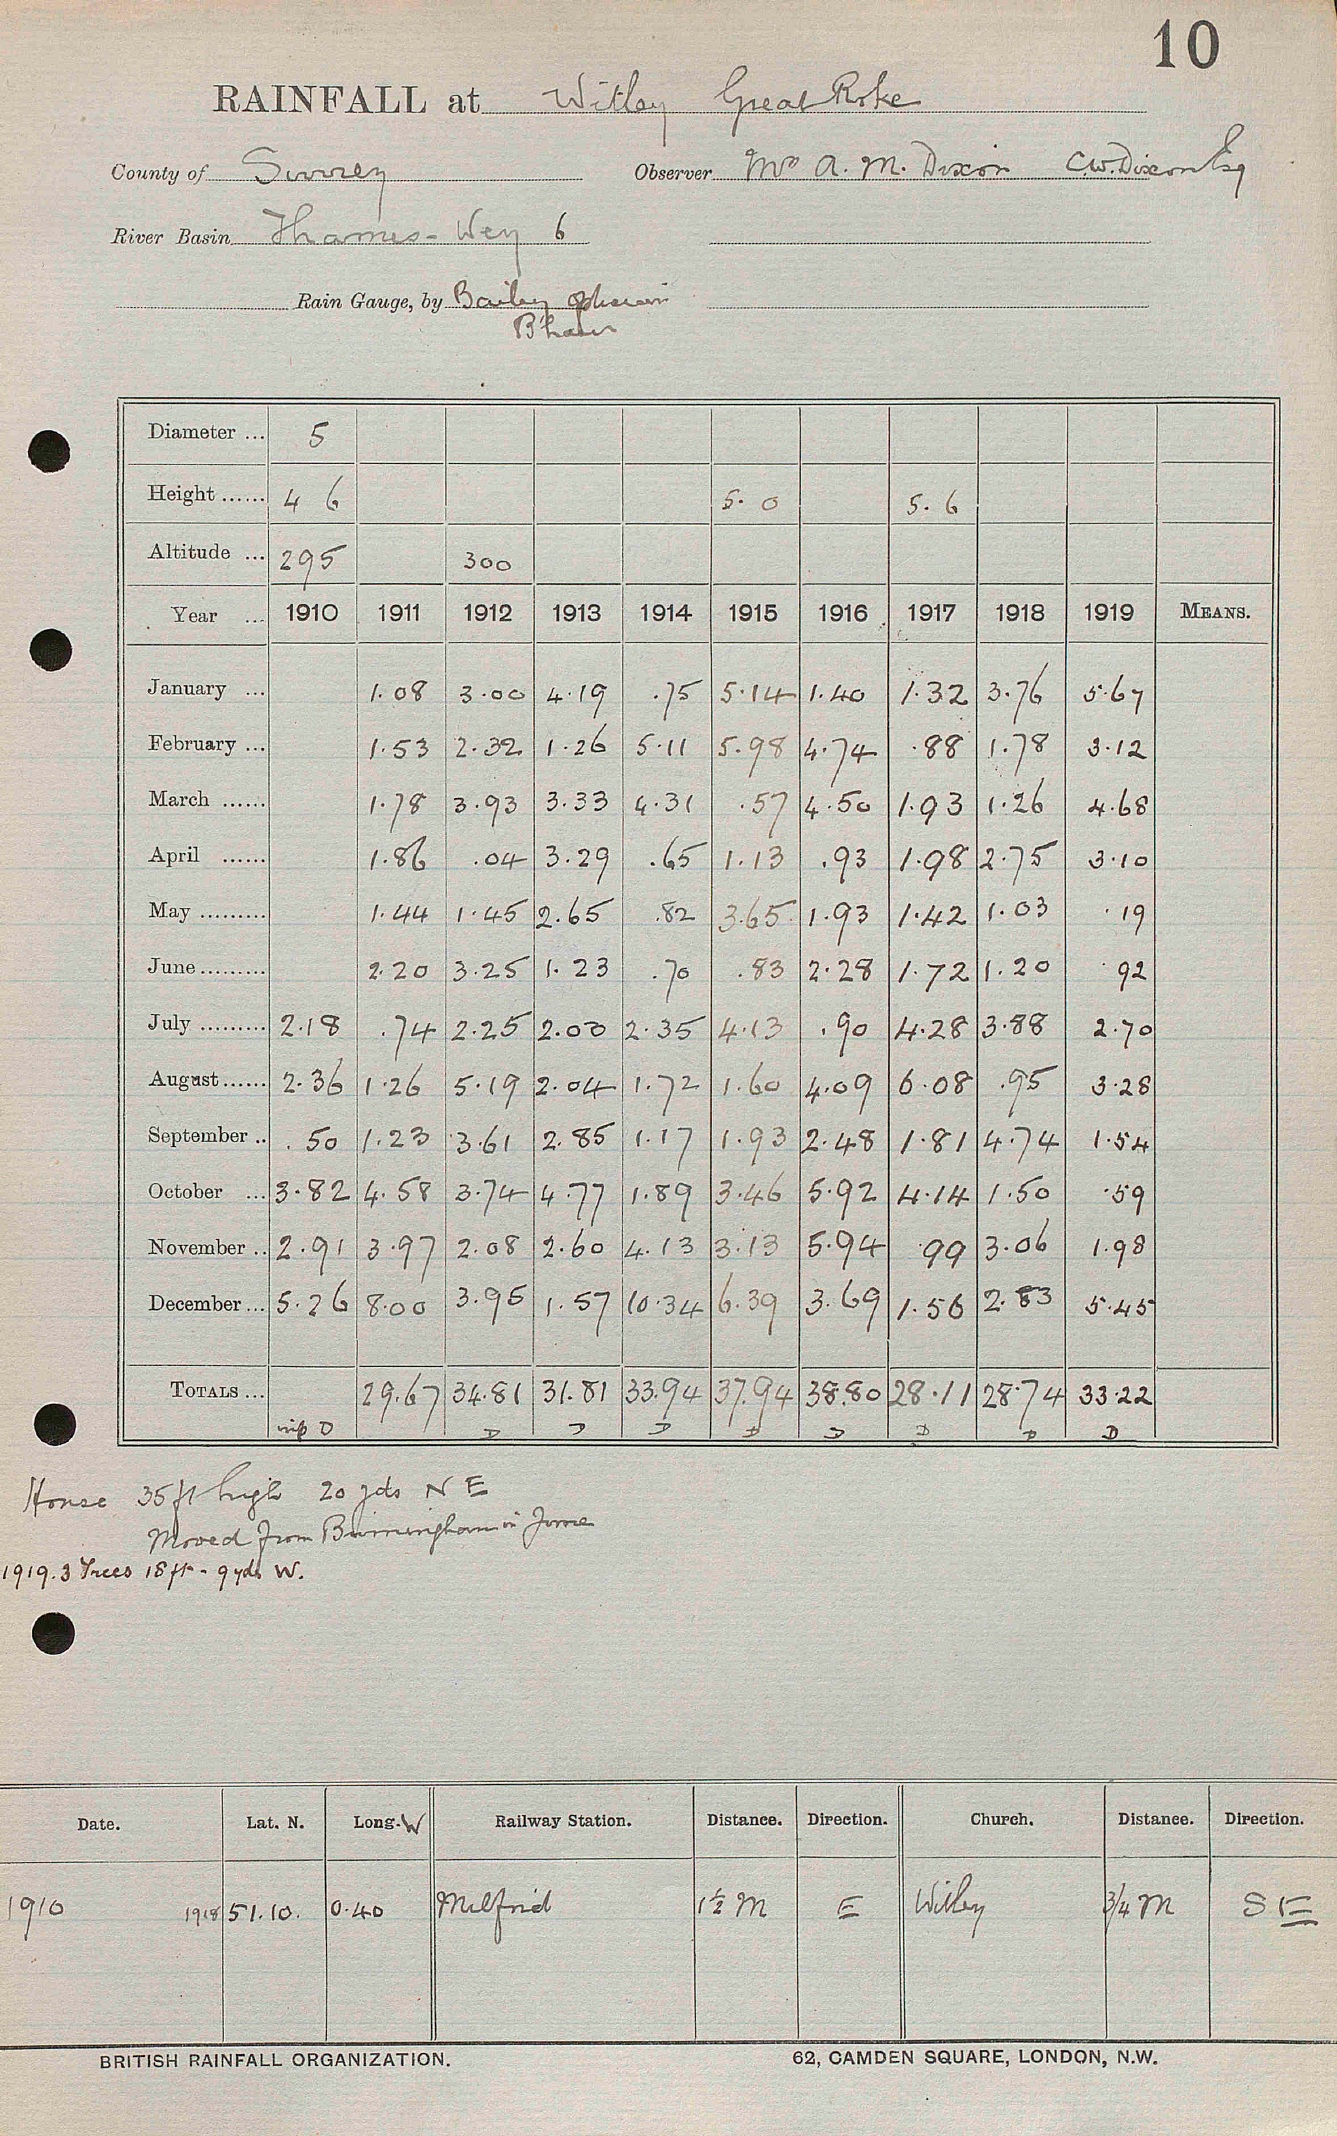 10
RAINFALL at Witley Great Roke
County of Surrey Observer Mrs A. M. Dixon C.W. Dixon Esq
River Basin Thames - Wey 6
Rain Gauge, by Bailey
B'ham
Diameter ... 5
Height ...... 4 6 5. 0 5. 6
Altitude ... 295 300
Year ... 1910 1911 1912 1913 1914 1915 1916 1917 1918 1919 MEANS.
January ... 1.08 3.00 4.19 .75 5.14 1.40 1.32 3.76 5.67
February ... 1.53 2.32 1.26 5.11 5.98 4.74 .88 1.78 3.12
March ...... 1.78 3.93 3.33 4.31 .57 4.50 1.93 1.26 4.68
April ...... 1.86 .04 3.29 .65 1.13 .93 1.98 2.75 3.10
May ......... 1.44 1.45 2.65 .82 3.65 1.93 1.42 1.03 .19
June ......... 2.20 3.25 1.23 .70 .83 2.28 1.72 1.20 .92
July ......... 2.18 .74 2.25 2.00 2.35 4.13 .90 4.28 3.88 2.70
August ...... 2.36 1.26 5.19 2.04 1.72 1.60 4.09 6.08 .95 3.28
September .. .50 1.23 3.61 2.85 1.17 1.93 2.48 1.81 4.74 1.54
October ... 3.82 4.58 3.74 4.77 1.89 3.46 5.92 4.14 1.50 .59
November .. 2.91 3.97 2.08 2.60 4.13 3.13 5.94 .99 3.06 1.98
December ... 5.26 8.00 3.95 1.57 10.34 6.39 3.69 1.56 2.83 5.45
TOTALS ... 29.67 34.81 31.81 33.94 37.94 38.80 28.11 28.74 33.22
D D D D D D D D D
House 35 ft high 20 yds N E
Moved from Birmingham in June
1919. 3 Trees 18 ft - 9 yds W.
Date. Lat. N. Long. W Railway Station. Distance. Direction. Church. Distance. Direction.
1910 1918 51.10. 0.40 Milford 1½ M E Witley ¾ M S E
BRITISH RAINFALL ORGANIZATION. 62, CAMDEN SQUARE, LONDON, N.W.